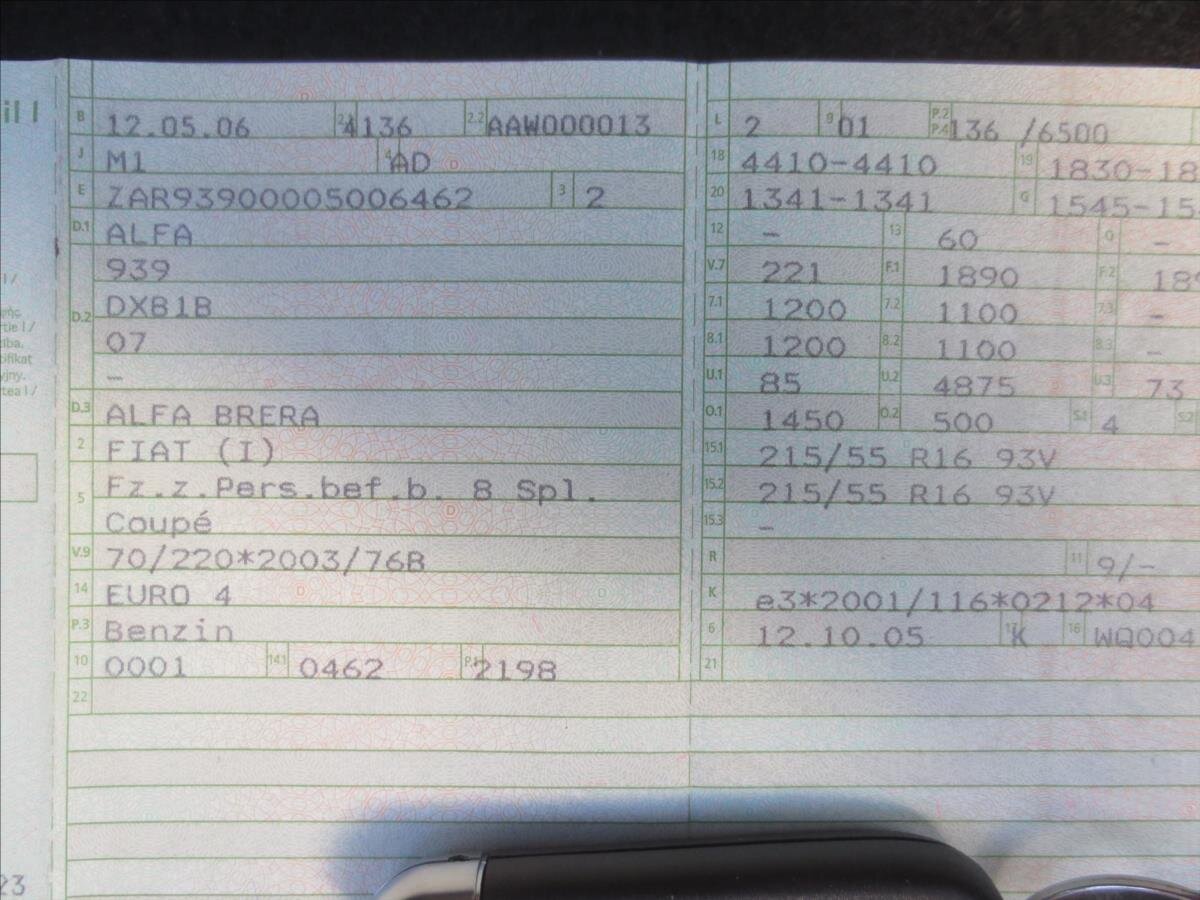 il I
B 12.05.06 2.1 4136 2.2 AAW000013
J M1 4 AD
E ZAR93900005006462 3 2
D.1 ALFA
939
D.2 DXB1B
07
–
D.3 ALFA BRERA
2 FIAT (I)
5 Fz.z.Pers.bef.b. 8 Spl.
Coupé
V.9 70/220*2003/76B
14 EURO 4
P.3 Benzin
10 0001 14.1 0462 P.1 2198
22
L 2 9 01 P.2 P.4 136 /6500
18 4410-4410 19 1830-18
20 1341-1341 G 1545-15
12 – 13 60 Q –
V.7 221 F.1 1890 F.2 189
7.1 1200 7.2 1100 7.3 –
8.1 1200 8.2 1100 8.3 –
U.1 85 U.2 4875 U.3 73
O.1 1450 O.2 500 S.1 4 S.2
15.1 215/55 R16 93V
15.2 215/55 R16 93V
15.3 –
R 11 9/-
K e3*2001/116*0212*04
6 12.10.05 17 K 16 WQ004
21
23